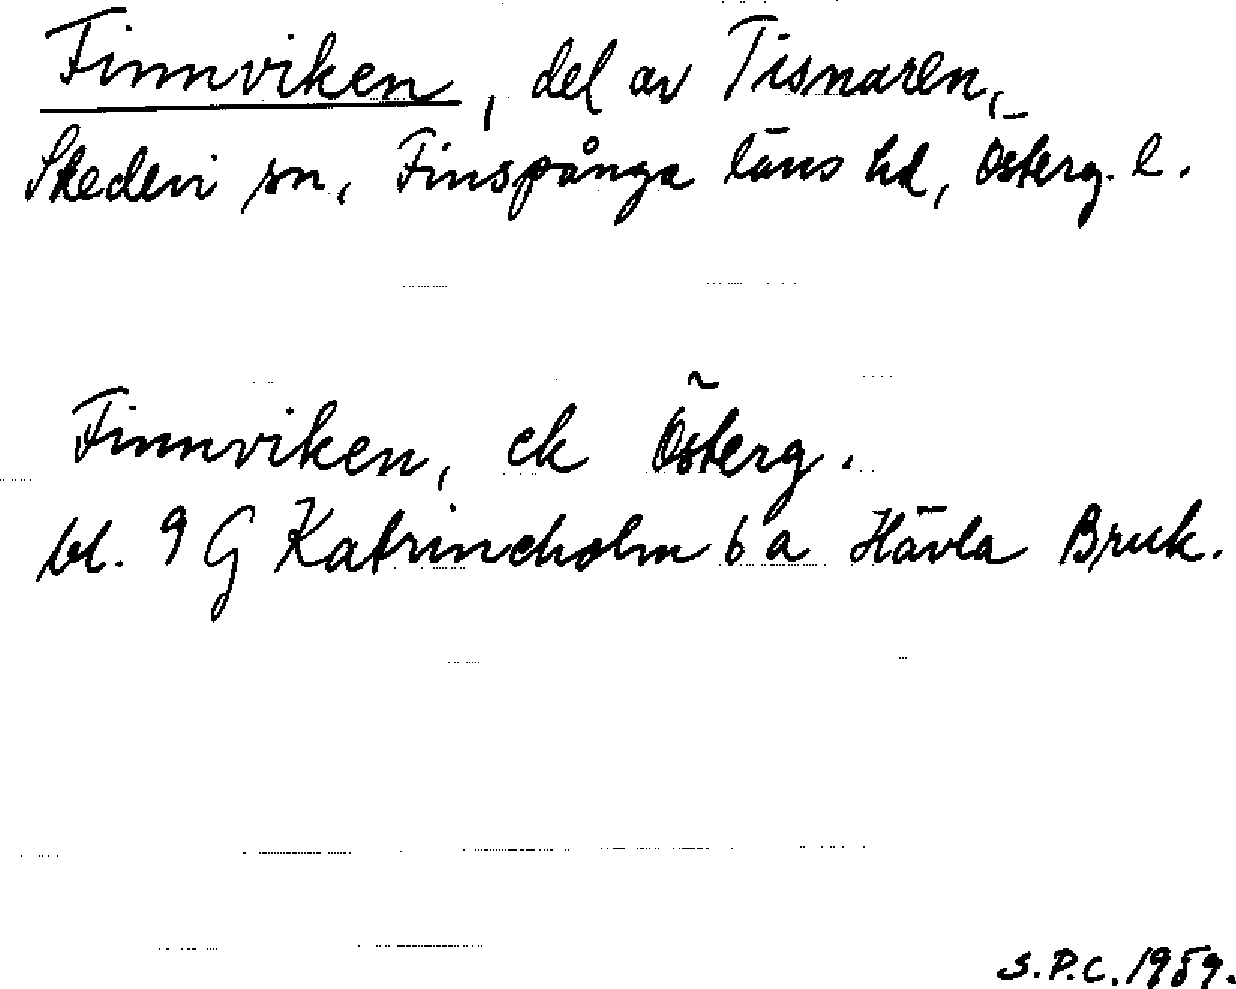 Finnviken, del av Tisnaren,
Skedevi sn, Finspånga läns hd, Österg. l.
Finnviken, ek Österg.
bl. 9 G Katrineholm 6 a Hävla Bruk.
S.P.C. 1989.